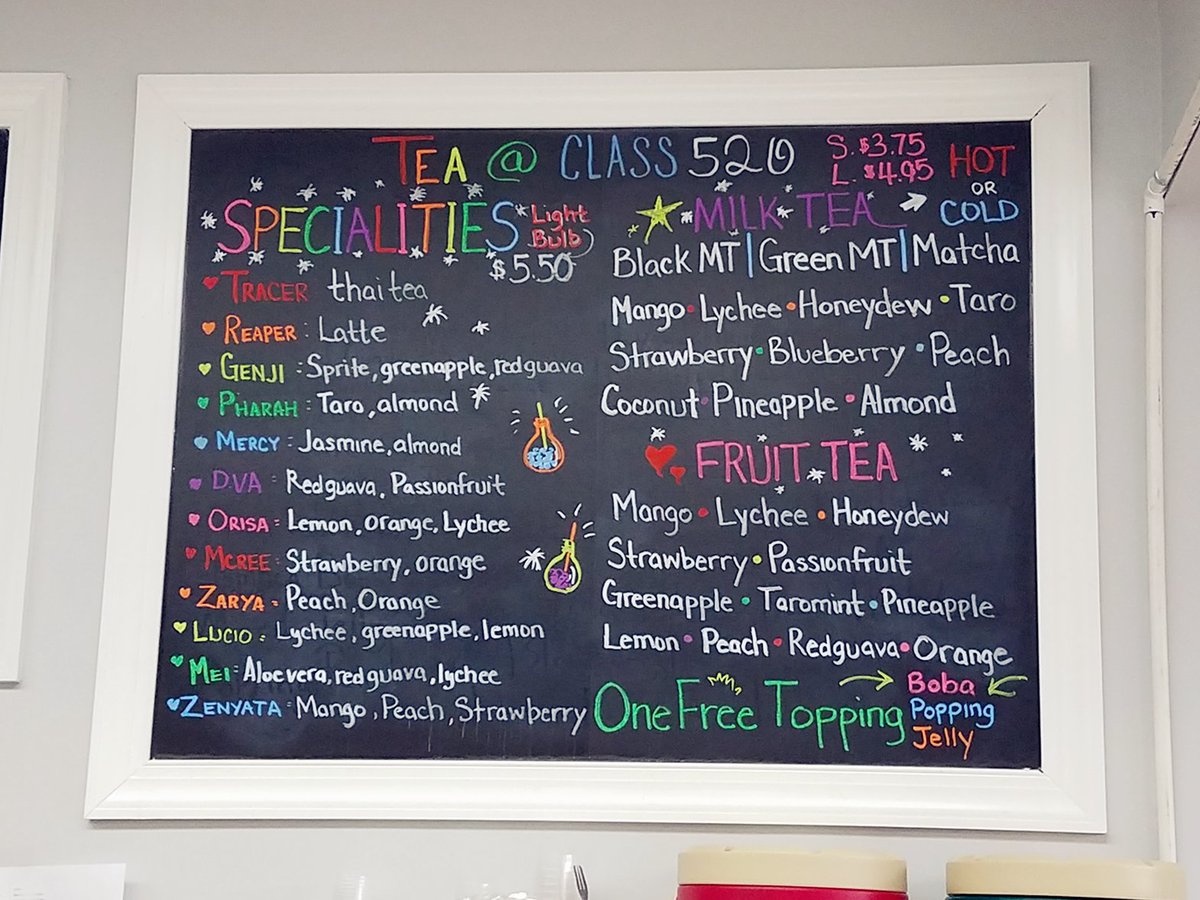 TEA @ CLASS 520
S. $3.75
L. $4.95
HOT
OR
COLD
SPECIALITIES
Light
Bulb
$5.50
TRACER thai tea
REAPER: Latte
GENJI: Sprite, greenapple, redguava
PHARAH: Taro, almond
MERCY: Jasmine, almond
D.VA: Redguava, Passionfruit
ORISA: Lemon, orange, Lychee
MCREE: Strawberry, orange
ZARYA: Peach, Orange
LUCIO: Lychee, greenapple, lemon
MEI: Aloevera, redguava, lychee
ZENYATA: Mango, Peach, Strawberry
MILK TEA
Black MT | Green MT | Matcha
Mango • Lychee • Honeydew • Taro
Strawberry • Blueberry • Peach
Coconut • Pineapple • Almond
FRUIT TEA
Mango • Lychee • Honeydew
Strawberry • Passionfruit
Greenapple • Taromint • Pineapple
Lemon • Peach • Redguava • Orange
One Free Topping
Boba
Popping
Jelly